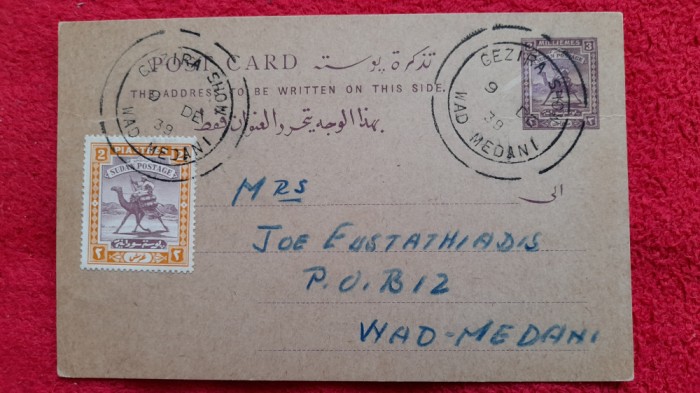 POST CARD تذكرة پوسته
THE ADDRESS TO BE WRITTEN ON THIS SIDE.
بهذا الوجه يتحرر العنوان فقط
3 MILLIEMES 3
GEZIRA SHOW
9 DE 39
WAD MEDANI
GEZIRA SHOW
9 DE 39
WAD MEDANI
2 PIASTRES 2
SUDAN POSTAGE
بوستة سودانية
٢ قرش ٢
الى
MRS
JOE EUSTATHIADIS
P.O.B 12
WAD-MEDANI